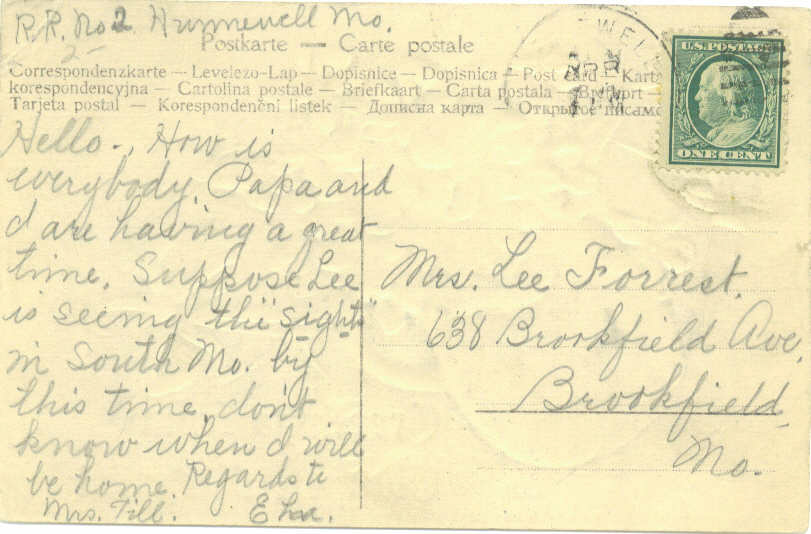 R.R. No 2 Hunnewell Mo.
Postkarte — Carte postale
Correspondenzkarte — Levelezo-Lap — Dopisnice — Dopisnica — Post card — Karta
korespondencyjna — Cartolina postale — Briefkaart — Carta postala — Brevkort
Tarjeta postal — Korespondenční listek — Дописна карта — Открытое письмо
U.S. POSTAGE
ONE CENT
Hello., How is
everybody. Papa and
I are having a great
time. Suppose Lee
is seeing the "sights"
in South Mo. by
this time, don't
know when I will
be home. Regards to
Mrs. Fill.
Mrs. Lee Forrest.
638 Brookfield Ave,
Brookfield,
Mo.